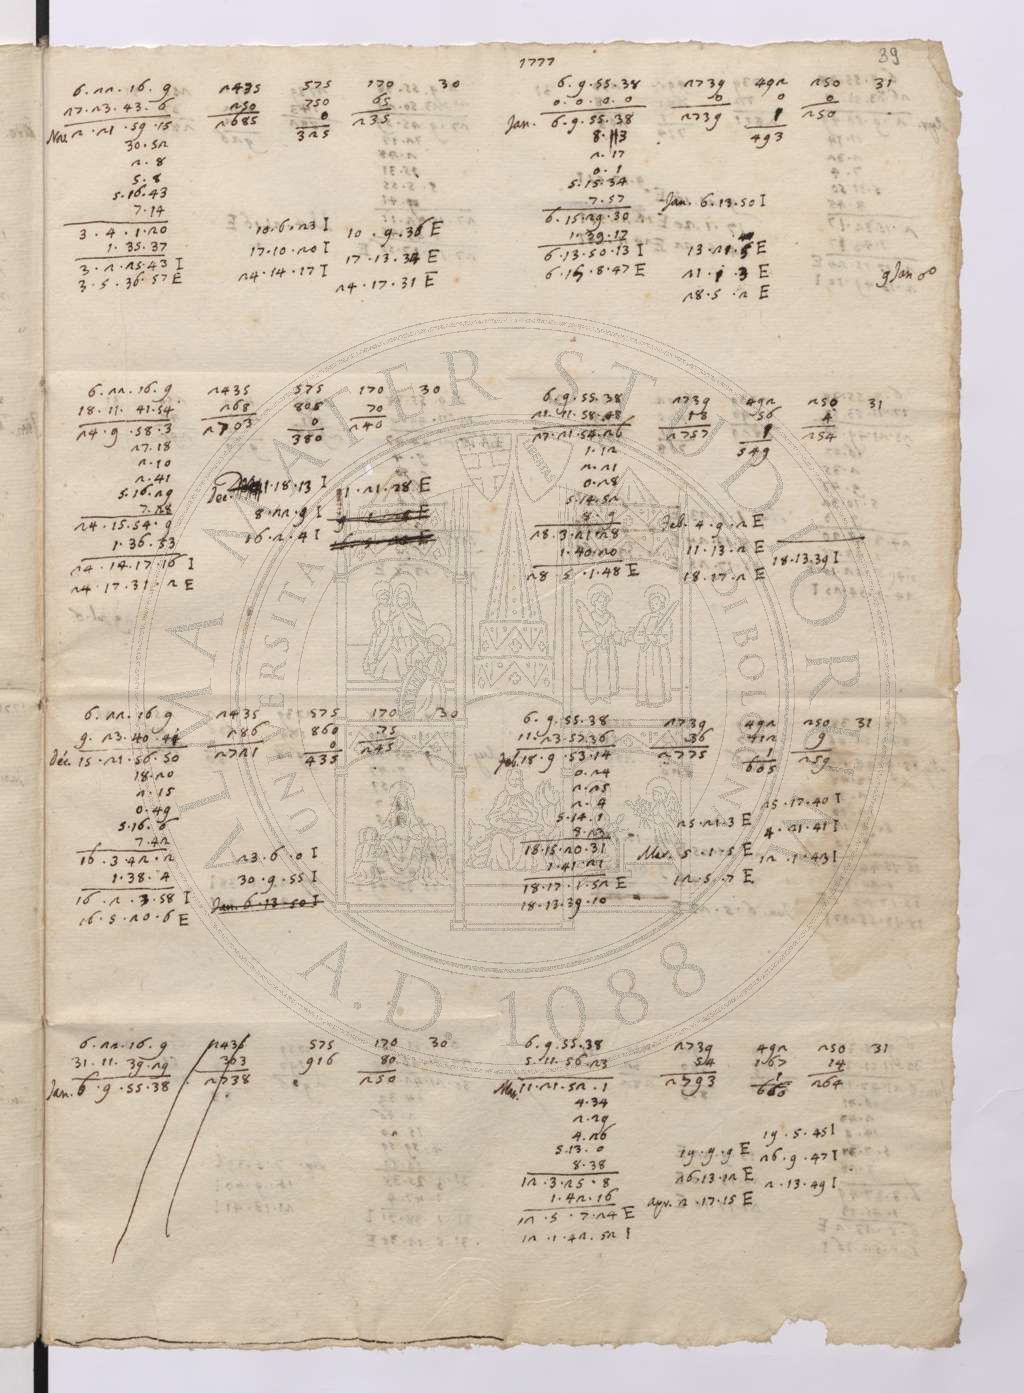 39
1777
6.22.16.9 2435 575 170 30
27.23.43.6 250 750 65
Nov. 2.21.59.15 2685 0 235
325
30.52
2.8
5.8
5.16.43
7.14
3.4.1.20 10.6.23 I 10.9.36 E
1.35.37 17.10.20 I 17.13.34 E
3.2.25.43 I 24.14.17 I 24.17.31 E
3.5.36.57 E
6.22.16.9 2435 575 170 30
18.11.41.54 268 805 70
24.9.58.3 2703 0 240
380
27.18
2.10
2.41
5.16.29 Dec. 1.18.13 I 1.21.28 E
7.28 8.22.9 I
24.15.54.9 16.2.4 I
1.36.53
24.14.17.16 I
24.17.31.2 E
6.22.16.9 2435 575 170 30
9.23.40.41 286 860 75
Dec. 15.21.56.50 2721 0 245
435
18.20
2.15
0.49
5.16.6
7.42
16.3.42.2 23.6.0 I
1.38.4 30.9.55 I
16.2.3.58 I Jan. 6.13.50 I
16.5.20.6 E
6.22.16.9 2435 575 170 30
31.11.39.29 303 916 80
Jan. 6.9.55.38 2738 250
6.9.55.38 2739 492 250 31
0.0.0.0 0 0 0
Jan. 6.9.55.38 2739 1 250
493
8.13
2.17
0.1
5.15.34
7.57 Jan. 6.13.50 I
6.15.29.30
1.39.17 13.21.5 E
6.13.50.13 I 21.1.3 E
6.15.8.47 E 28.5.2 E
9 Jan
6.9.55.38 2739 492 250 31
21.11.58.48 18 56 4
27.21.54.26 2757 1 254
549
1.12
2.21
0.28
5.14.52
8.9 Feb. 4.9.2 E
28.3.21.28 11.13.2 E
1.40.20 18.17.2 E 18.13.39 I
28.5.1.48 E
6.9.55.38 2739 492 250 31
11.23.57.36 36 412 9
Feb. 18.9.53.14 2775 1 259
605
0.24
2.25
2.4
5.14.1 25.21.3 E 25.17.40 I
8.23 4.21.41 I
18.15.20.31 Mar. 5.1.5 E 12.1.43 I
1.41.21 12.5.7 E
18.17.1.52 E
18.13.39.10
6.9.55.38 2739 492 250 31
5.11.56.23 54 167 14
Mar. 11.21.52.1 2793 1 264
660
4.34
2.29
4.26
5.13.0
8.38 19.9.9 E 19.5.45 I
12.3.25.8 26.13.12 E 26.9.47 I
1.42.16 apr. 2.17.15 E 2.13.49 I
12.5.7.24 E
12.1.42.52 I
ALMA MATER STUDIORUM
UNIVERSITÀ DI BOLOGNA
A.D. 1088